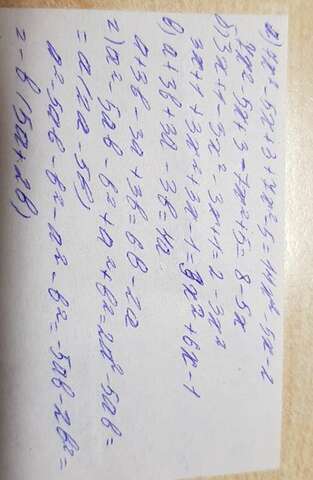 а) 7x² - 5x + 3 + 7x² - 5 = 14x² - 5x - 2
7x² - 5x + 3 - 7x² + 5 = 8 - 5x
б) 3x + 1 - 3x² - 3x + 1 = 2 - 3x²
3x + 1 + 3x² + 3x - 1 = x² + 6x - 1
в) a + 3b + 3a - 3b = 4a
a + 3b - 3a + 3b = 6b - 2a
г) a² - 5ab - b² + a² + b² = 2a² - 5ab =
= a(2a - 5b)
a² - 5ab - b² - a² - b² = -5ab - 2b² =
= -b(5a + 2b)